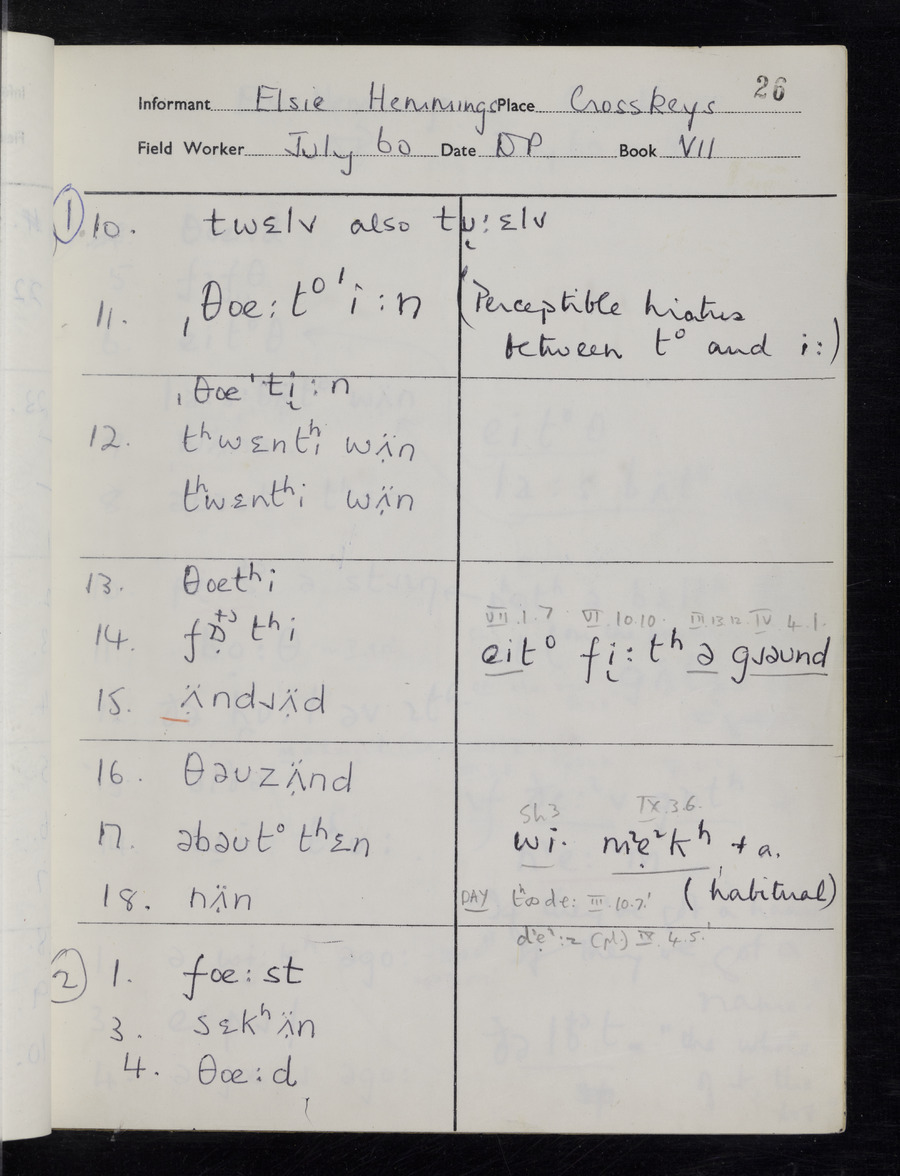 26
Informant Elsie Hemmings Place Crosskeys
Field Worker July 60 Date DP Book VII
① 10. twɛlv also tʋ̨ːɛlv
11. ˌθœːt°ˈiːn (Perceptible hiatus
between t° and iː)
ˌθœˈti̜ːn
12. tʰwɛntʰi wʌ̈n
tʰwɛntʰi wʌ̈n
13. θœtʰi
14. fɒ̣ tʰi
VII.1.7 VI.10.10. III.13.12 IV 4.1.
eit° fi̜ːtʰ ə gɹəund
15. ʌ̈ndɹʌ̈d
16. θəuzʌ̈nd
Sh3 IX.3.6.
17. əbəut° tʰɛn
wi· mẹʔkʰ + a.
18. nʌ̈n
(habitual)
DAY III.10.7.
(pl.) IX 4.5.
② 1. fœːst
3. sɛkʰʌ̈n
4. θœːd